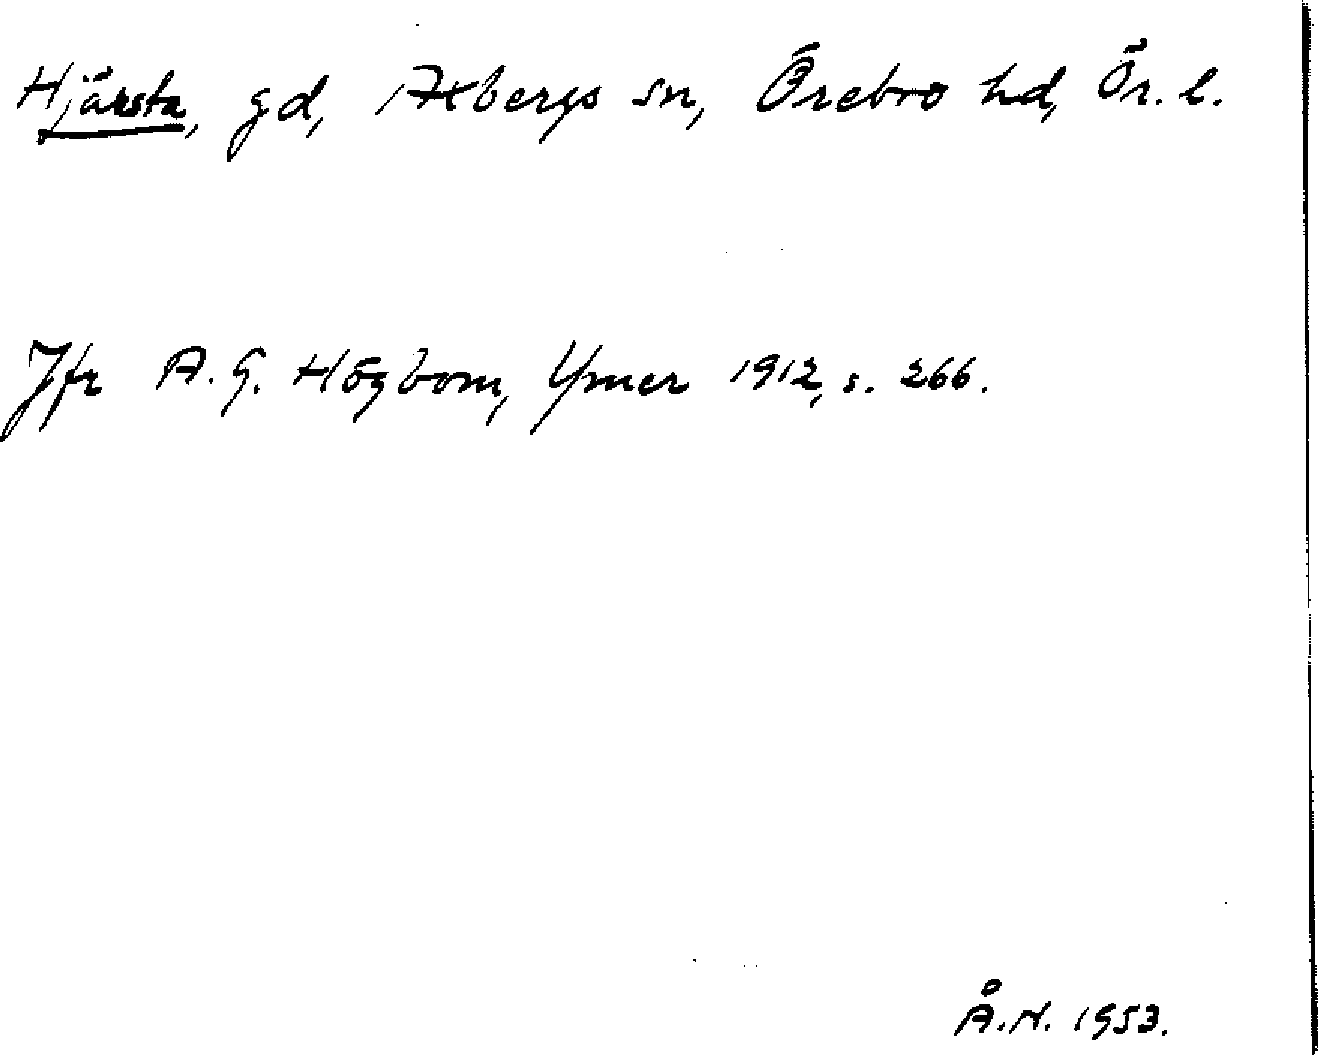 Hjärsta, gd, Axbergs sn, Örebro hd, Ör. l.
Jfr A. G. Högbom, Ymer 1912, s. 266.
Å.N. 1953.